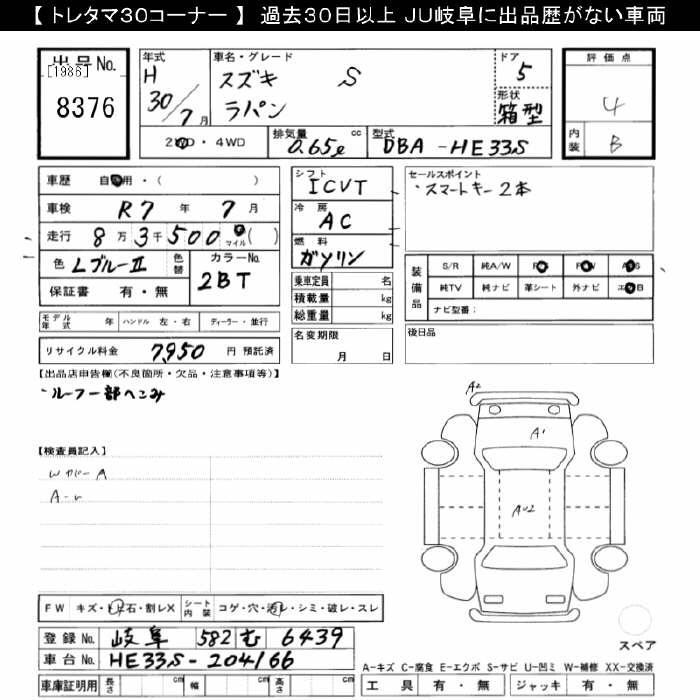 【 トレタマ３０コーナー 】 過去３０日以上 ＪＵ岐阜に出品歴がない車両
出品No.
[1986]
8376
年式
H
30/7月
車名・グレード
スズキ S
ラパン
ドア
5
形状
箱型
2WD・4WD
排気量 cc
0.65ℓ
型式
DBA-HE33S
評価点
4
内装
B
車歴 自家用・( )
車検 R7 年 7 月
走行 8 万 3 千 500 マイル ( )
色 Lブルー II
色替
カラーNo.
2BT
保証書 有・無
シフト
ICVT
冷房
AC
燃料
ガソリン
乗車定員 名
積載量 kg
総重量 kg
セールスポイント
・スマートキー2本
装備品
S/R 純A/W P/S P/W ABS
純TV 純ナビ 革シート 外ナビ エアB
ナビ型番：
モデル年式 年 ハンドル 左・右 ディーラー・並行
名変期限
月 日
後日品
リサイクル料金 7950 円 預託済
【出品店申告欄(不良箇所・欠品・注意事項等)】
・ルーフ一部へこみ
【検査員記入】
Wカバー A
A2
A1
AU2
FW キズ・飛石・割レX シート内装 コゲ・穴・汚レ・シミ・破レ・スレ
登録No. 岐阜 582 む 6439
車台No. HE33S-204166
車庫証明用 長さ cm 幅 cm 高さ cm
スペア
A-キズ C-腐食 E-エクボ S-サビ U-凹ミ W-補修 XX-交換済
工具 有・無 ジャッキ 有・無